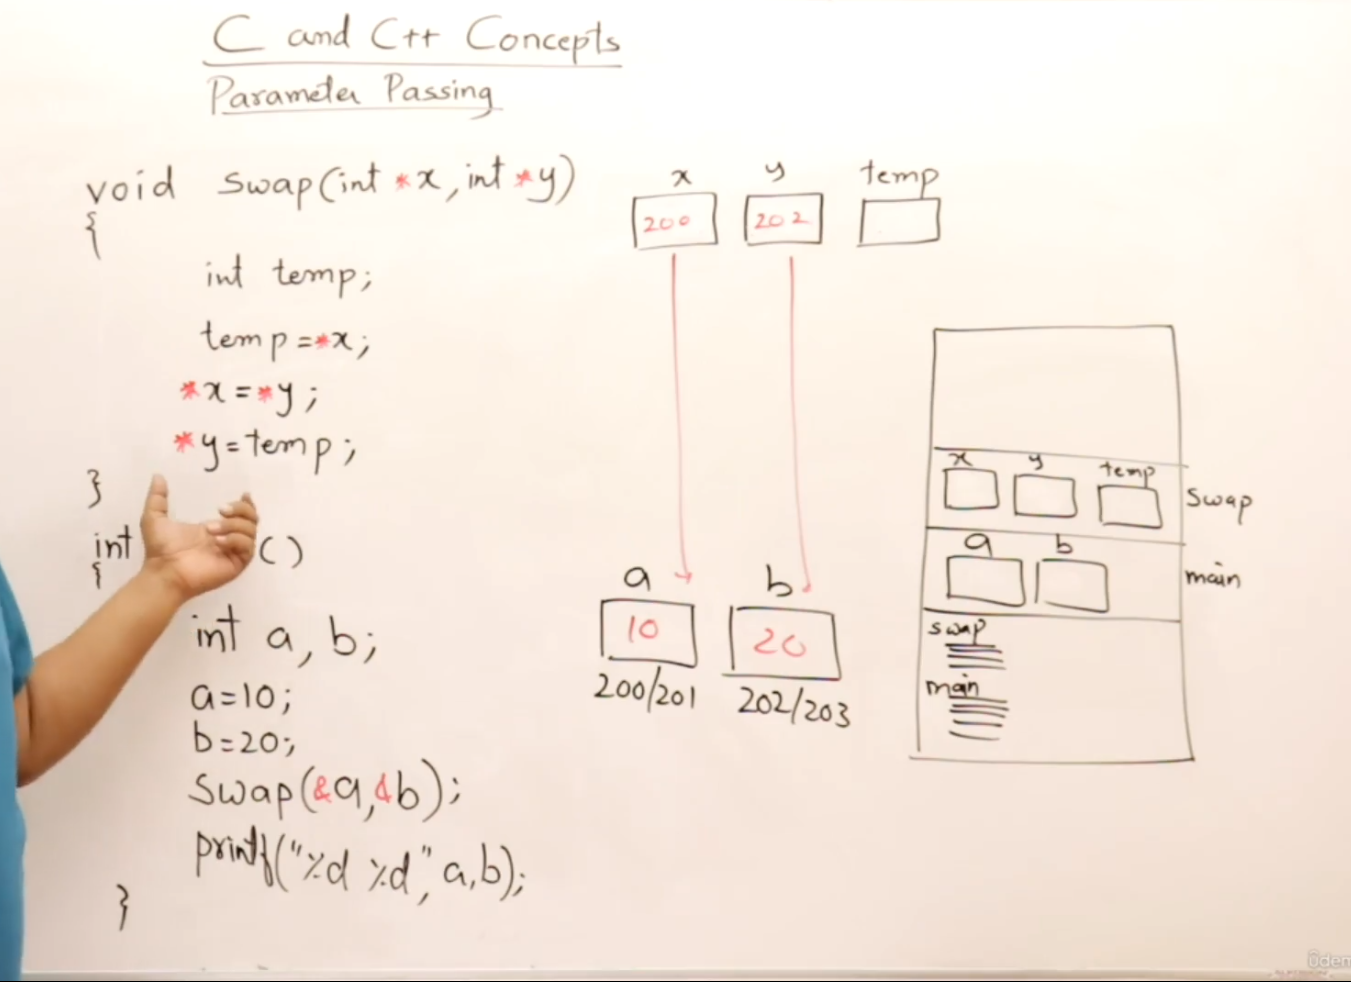 C and C++ Concepts
Parameter Passing
void swap(int *x, int *y)
{
int temp;
temp=*x;
*x=*y;
*y=temp;
}
int ()
{
int a, b;
a=10;
b=20;
swap(&a,&b);
printf("%d %d", a,b);
}
x y temp
200 202
a b
10 20
200/201 202/203
x y temp
swap
a b
main
swap
main